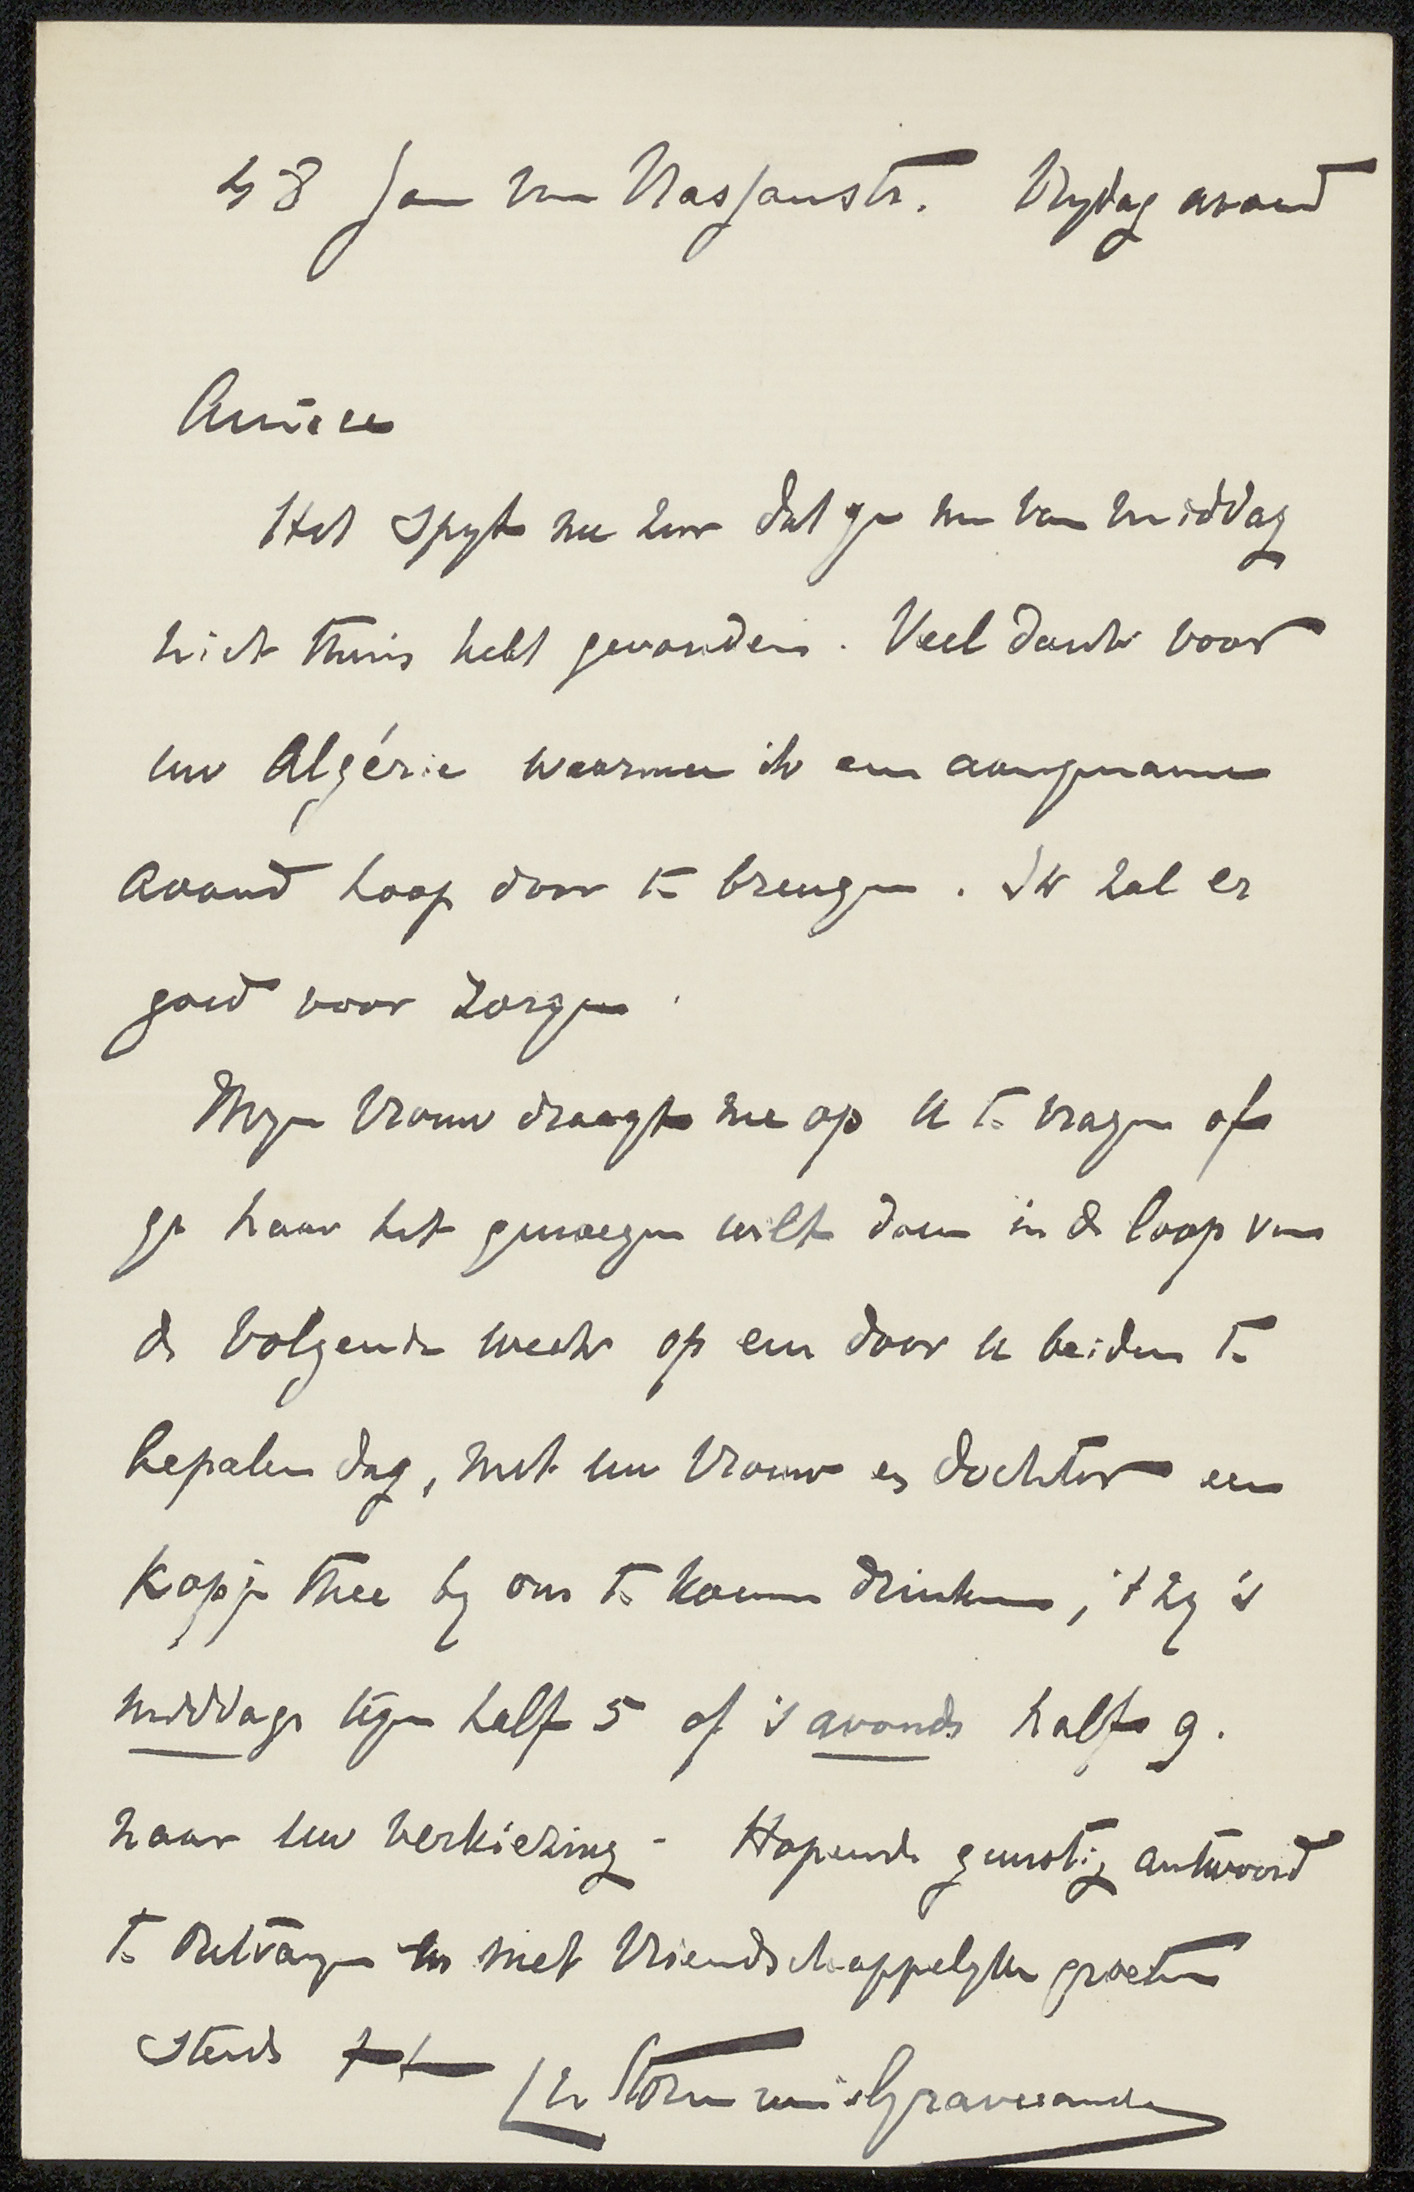 48 Jan van Nassaustr. Vrydag avond
Amice
Het spyt me zeer dat ge me van middag
niet thuis hebt gevonden. Veel dank voor
uw Algérie waarmee ik een aangename
avond hoop door te brengen. Ik zal er
goed voor zorgen.
Myn vrouw draagt me op u te vragen of
ge haar het genoegen wilt doen in de loop van
de volgende week op een door u beiden te
bepalen dag, met uw vrouw en dochter een
kopje thee by ons te komen drinken, 't zy 's
middags tegen half 5 of 's avonds half 9.
naar uw verkiezing - Hopende gunstig antwoord
te ontvangen en met vriendschappelyke groeten
steeds tt Storm van 's Gravesande